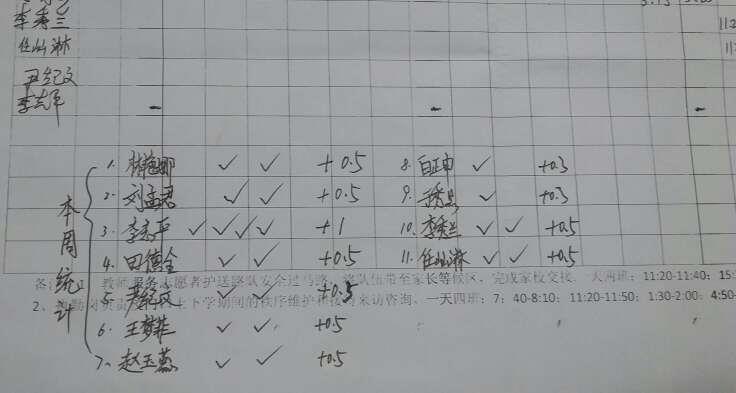 李秀兰
任灿淋
尹纪文
李志军
本周统计
1. 林艳娜 ✓ ✓ +0.5
2. 刘孟君 ✓ ✓ +0.5
3. 李志平 ✓ ✓ ✓ ✓ +1
4. 田德全 ✓ ✓ +0.5
5. 尹纪文 ✓ ✓ +0.5
6. 王梦菲 ✓ ✓ +0.5
7. 赵玉蕊 ✓ ✓ +0.5
8. 白正申 ✓ +0.3
9. ✓ +0.3
10. 李秀兰 ✓ ✓ +0.5
11. 任灿淋 ✓ ✓ +0.5
教师服务志愿者护送路队安全过马路，将队伍带至家长等候区，完成家校交接。一天两班：11:20-11:40；15:
2、上下学期间的秩序维护和接待来访咨询。一天四班：7：40-8:10；11:20-11:50；1:30-2:00；4:50-